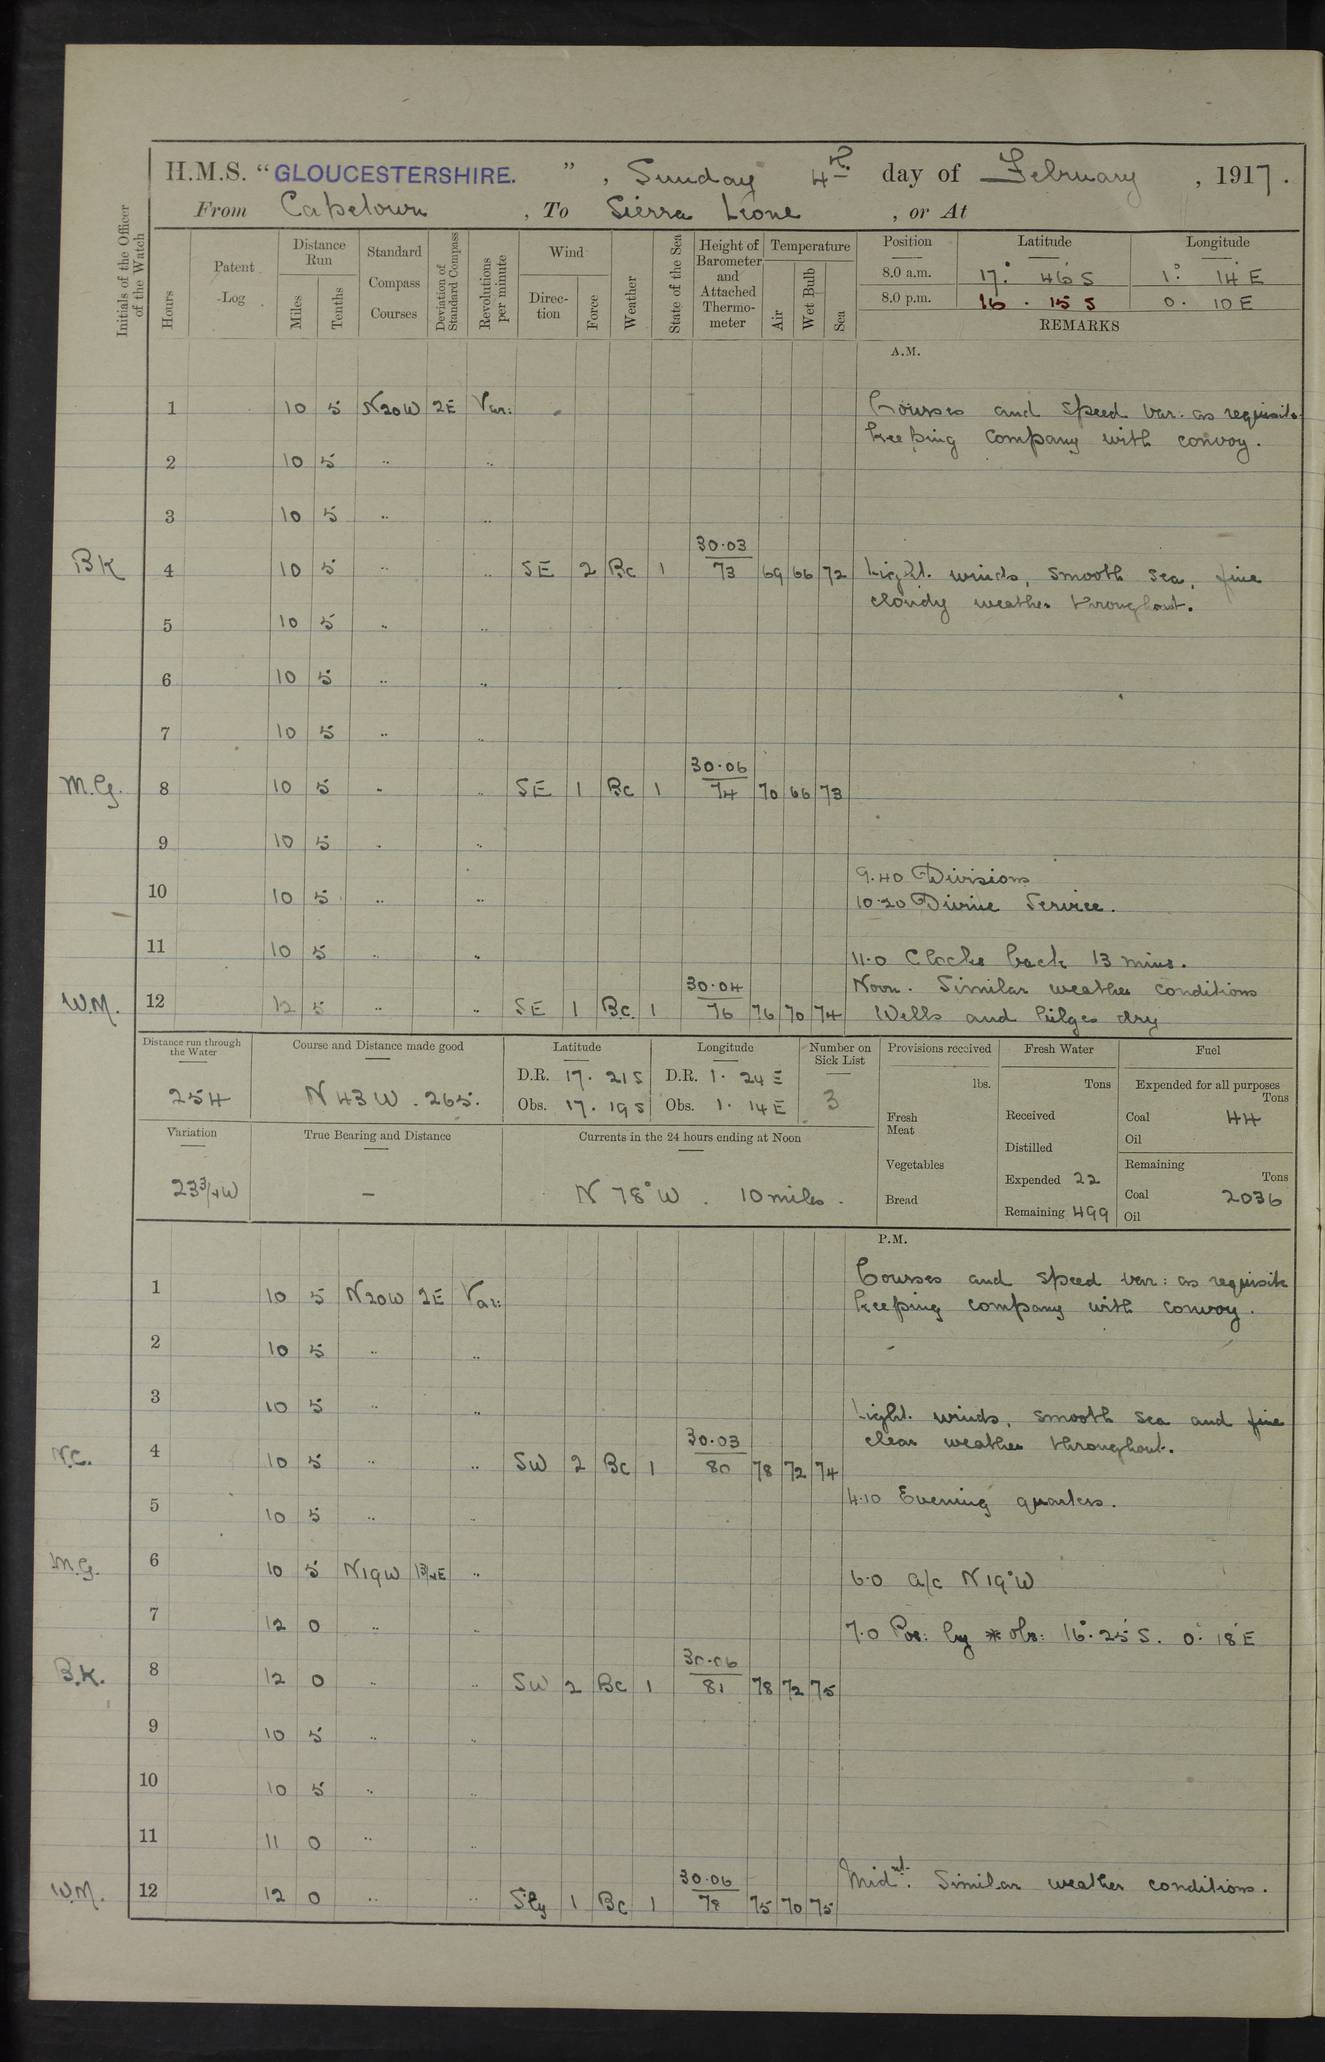 H.M.S. “GLOUCESTERSHIRE.” , Sunday 4th day of February , 1917.
From Capetown , To Sierra Leone , or At
Initials of the Officer of the Watch
Hours
Patent Log
Distance Run
Miles
Tenths
Standard Compass Courses
Deviation of Standard Compass
Revolutions per minute
Wind
Direction
Force
Weather
State of the Sea
Height of Barometer and Attached Thermometer
Temperature
Air
Wet Bulb
Sea
Position Latitude Longitude
8.0 a.m. 17° 46 S 1° 14 E
8.0 p.m. 16 . 15 S 0. 10 E
REMARKS
A.M.
1 10 5 N20W 2E Var: Courses and speed var: as requisite
keeping company with convoy.
2 10 5 .. ..
3 10 5 .. ..
30.03
BK 4 10 5 .. .. SE 2 Bc 1 73 69 66 72 Light winds, smooth sea, fine
cloudy weather throughout.
5 10 5 .. ..
6 10 5 .. ..
7 10 5 .. ..
30.06
M.G. 8 10 5 .. .. SE 1 Bc 1 74 70 66 73
9 10 5 .. ..
9.40 Divisions
10 10 5 .. .. 10.20 Divine Service.
11 10 5 .. .. 11.0 Clocks back 13 mins.
30.04 Noon. Similar weather conditions
W.M. 12 12 5 .. .. SE 1 Bc 1 76 76 70 74 Wells and bilges dry
Distance run through the Water
254
Course and Distance made good
N 43 W . 265.
Latitude
D.R. 17. 21 S
Obs. 17. 19 S
Longitude
D.R. 1. 24 E
Obs. 1. 14 E
Number on Sick List
3
Provisions received
lbs.
Fresh Meat
Vegetables
Bread
Fresh Water
Tons
Received
Distilled
Expended 22
Remaining 499
Fuel
Expended for all purposes
Tons
Coal 44
Oil
Remaining
Tons
Coal 2036
Oil
Variation
23 3/4 W
True Bearing and Distance
–
Currents in the 24 hours ending at Noon
N 78° W . 10 miles.
P.M.
1 10 5 N20W 2E Var: Courses and speed var: as requisite
keeping company with convoy.
2 10 5 .. ..
3 10 5 .. .. Light winds, smooth sea and fine
30.03 clear weather throughout.
N.C. 4 10 5 .. .. SW 2 Bc 1 80 78 72 74
5 10 5 .. .. 4.10 Evening quarters.
M.G. 6 10 5 N19W 1 3/4 E .. 6.0 a/c N 19° W
7 12 0 .. .. 7.0 Pos: by * obs: 16° 25' S. 0° 18' E
30.06
B.K. 8 12 0 .. .. SW 2 Bc 1 81 78 72 75
9 10 5 .. ..
10 10 5 .. ..
11 11 0 .. ..
30.06 Midnt. Similar weather conditions.
W.M. 12 12 0 .. .. Sly 1 Bc 1 78 75 70 75